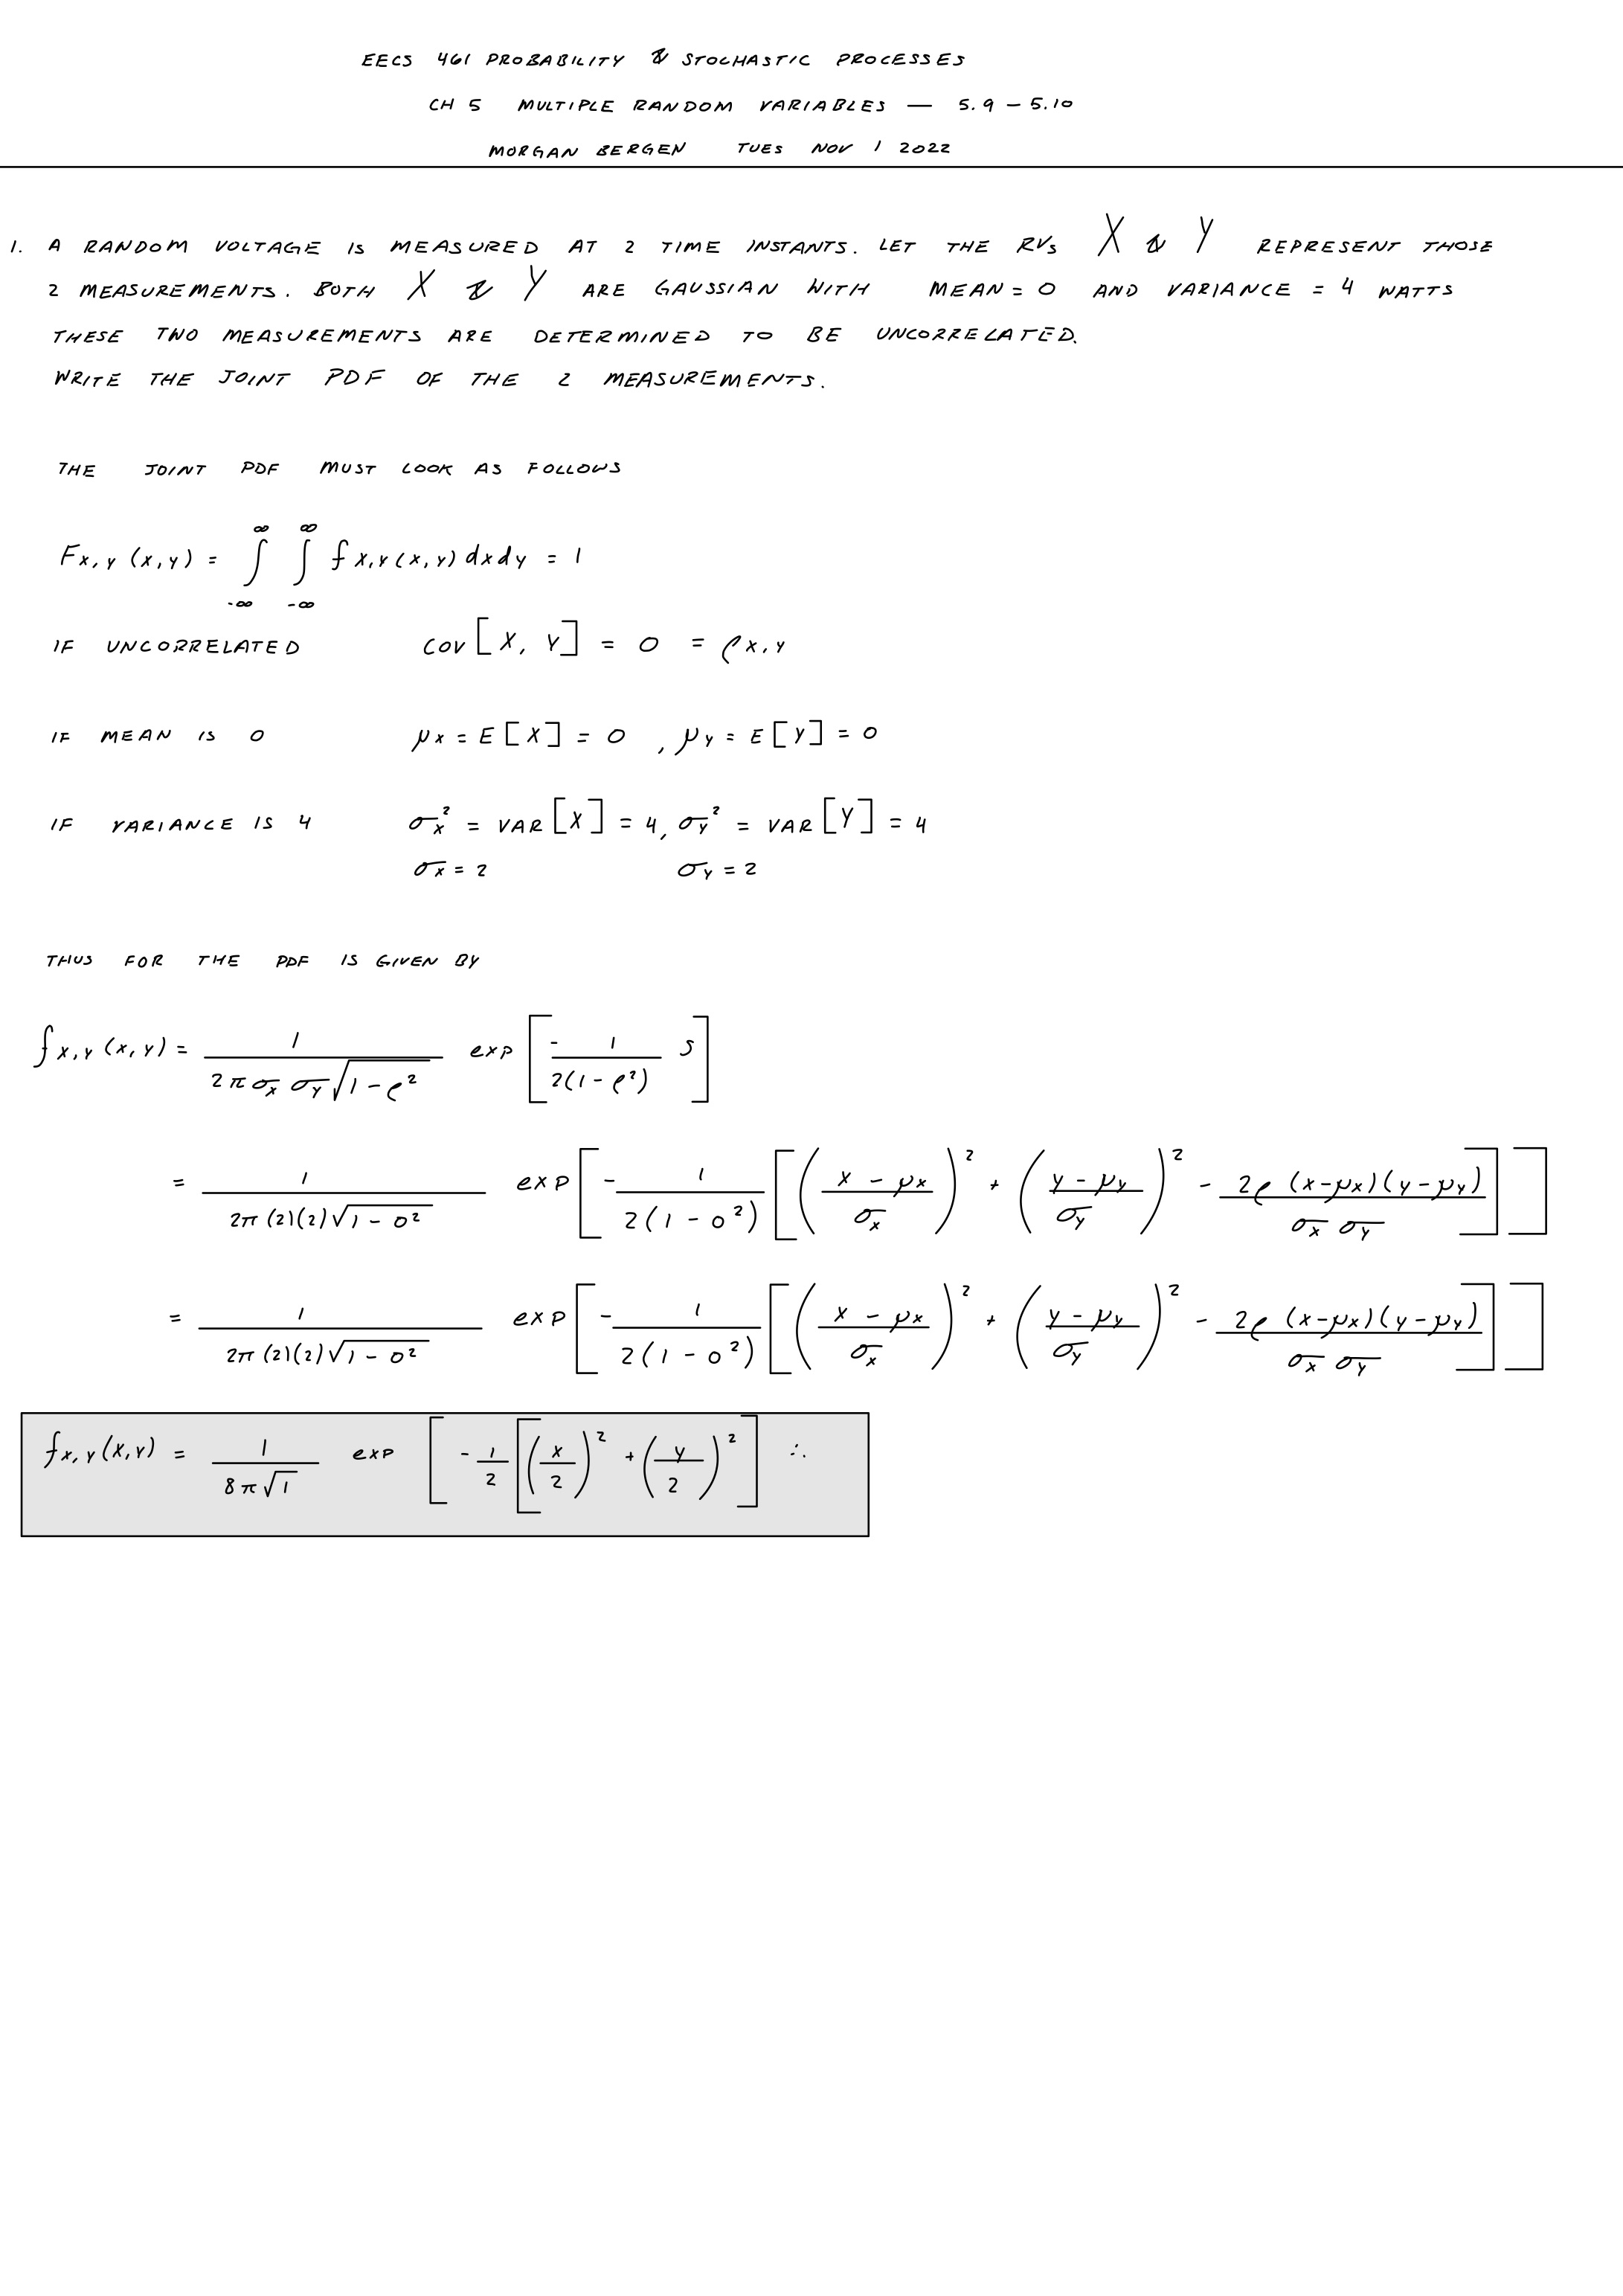 EECS 461 PROBABILITY & STOCHASTIC PROCESSES
CH 5 MULTIPLE RANDOM VARIABLES — 5.9 – 5.10
MORGAN BERGEN TUES NOV 1 2022
1. A RANDOM VOLTAGE IS MEASURED AT 2 TIME INSTANTS. LET THE RVs X & Y REPRESENT THOSE
2 MEASUREMENTS. BOTH X & Y ARE GAUSSIAN WITH MEAN = 0 AND VARIANCE = 4 WATTS
THESE TWO MEASUREMENTS ARE DETERMINED TO BE UNCORRELATED.
WRITE THE JOINT PDF OF THE 2 MEASUREMENTS.
THE JOINT PDF MUST LOOK AS FOLLOWS
F_{X,Y}(x,y) = ∫_{-∞}^{∞} ∫_{-∞}^{∞} f_{X,Y}(x,y) dx dy = 1
IF UNCORRELATED COV[X, Y] = 0 = ρ_{X,Y}
IF MEAN IS 0 μ_X = E[X] = 0 , μ_Y = E[Y] = 0
IF VARIANCE IS 4 σ_X² = VAR[X] = 4, σ_Y² = VAR[Y] = 4
σ_X = 2 σ_Y = 2
THUS FOR THE PDF IS GIVEN BY
f_{X,Y}(x,y) = 1 / (2π σ_X σ_Y √(1 - ρ²)) exp[ - 1 / (2(1 - ρ²)) S ]
= 1 / (2π (2)(2) √(1 - 0²)) exp[ - 1 / (2(1 - 0²)) [ ((x - μ_X) / σ_X)² + ((y - μ_Y) / σ_Y)² - 2ρ (x - μ_X)(y - μ_Y) / (σ_X σ_Y) ] ]
= 1 / (2π (2)(2) √(1 - 0²)) exp[ - 1 / (2(1 - 0²)) [ ((x - μ_X) / σ_X)² + ((y - μ_Y) / σ_Y)² - 2ρ (x - μ_X)(y - μ_Y) / (σ_X σ_Y) ] ]
f_{X,Y}(X,Y) = 1 / (8π √1) exp [ - 1/2 [ (x/2)² + (y/2)² ] ∴